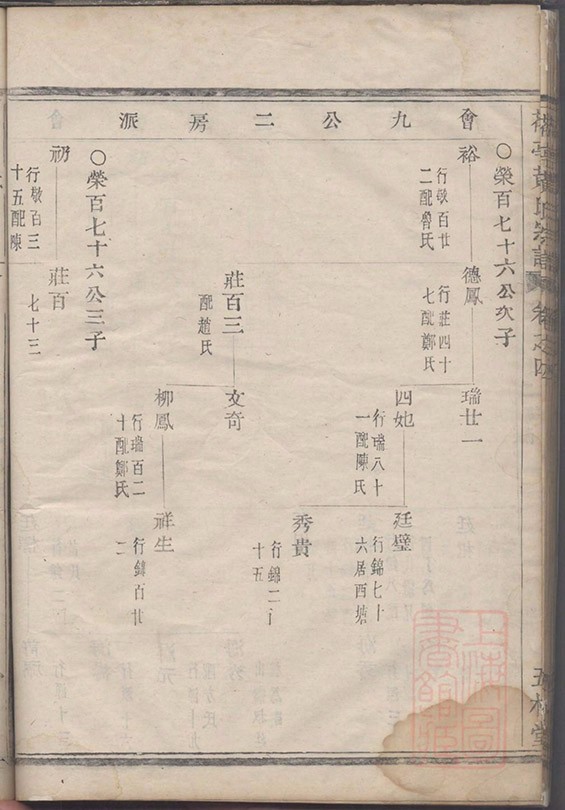 會九公二房派
○榮百七十六公次子
裕
行敬百廿
二配魯氏
德鳳
行莊四十
七配鄭氏
瑞廿一
四她
行瑞八十
一配陳氏
廷璧
行錦七十
六居西塘
秀貴
行錦二
十五
莊百三
配趙氏
文奇
柳鳳
行瑞百二
十配鄭氏
祥生
行錦百廿
二
○榮百七十六公三子
礽
行敬百三
十五配陳
莊百
七十三
上海圖書館藏